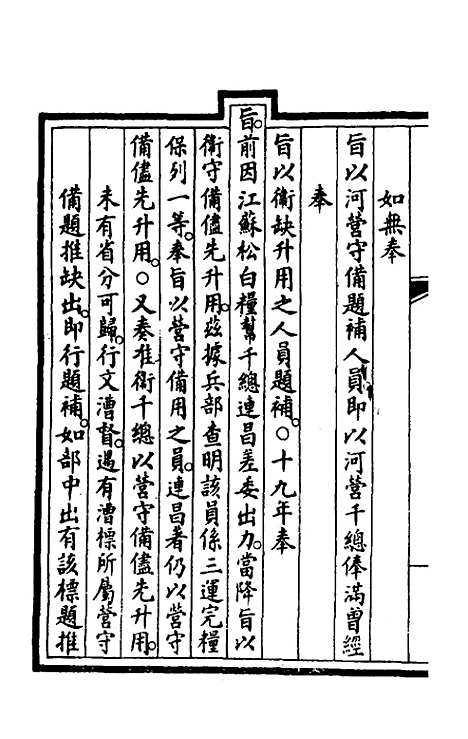 如無奉
旨以河營守備題補人員即以河營千總俸滿曾經
奉
旨以衛缺升用之人員題補。○十九年奉
旨。前因江蘇松白糧幫千總連昌差委出力。當降旨以
衛守備儘先升用。茲據兵部查明該員係三運完糧
保列一等。奉旨以營守備用之員。連昌著仍以營守
備儘先升用。○又奏准衛千總以營守備儘先升用。
未有省分可歸。行文漕督。遇有漕標所屬營守
備題推缺出。即行題補。如部中出有該標題推